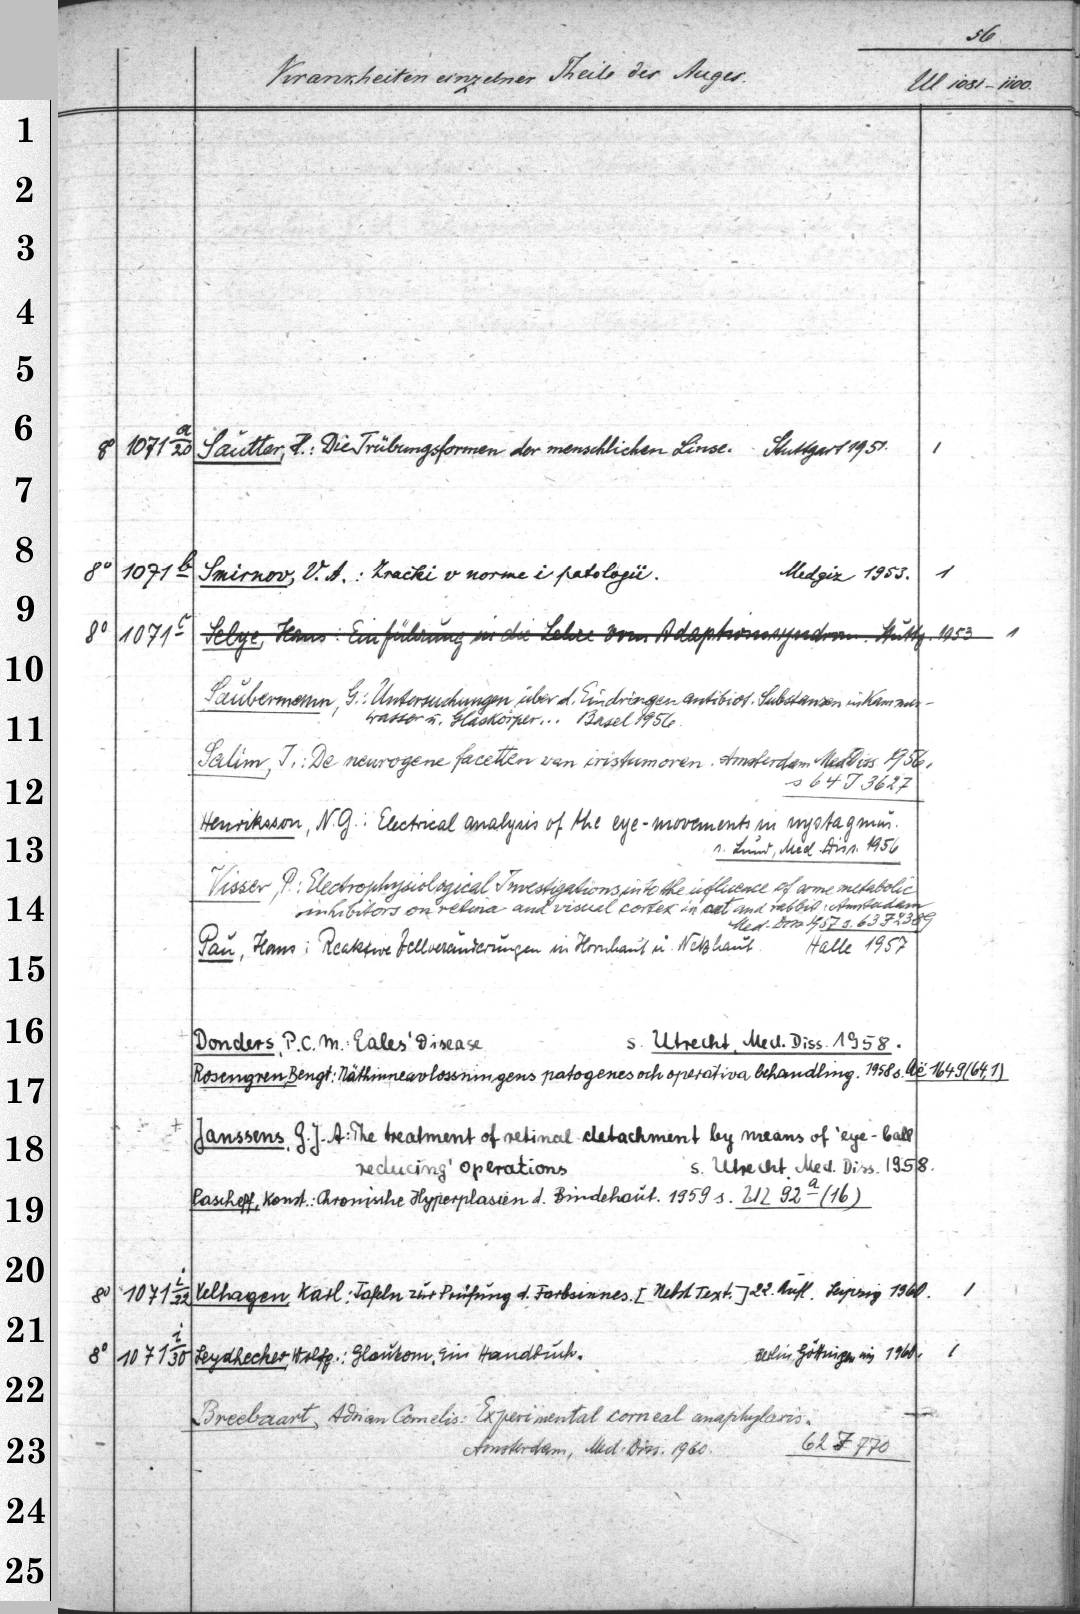 56
Krankheiten einzelner Theile des Auges.
Ul 1031-1100.
1
2
3
4
5
6
8° 1071 a/20 Sautter, H.: Die Trübungsformen der menschlichen Linse. Stuttgart 1951. 1
7
8
8° 1071 b Smirnov, V. A.: Zracki v norme i patologii. Medgiz 1953. 1
9
8° 1071 c Selye, Hans: Einführung in die Lehre vom Adaptionssyndrom. Stuttg. 1953 1
10
Saubermann, G.: Untersuchungen über d. Eindringen antibiot. Substanzen in Kammer-
11
wasser u. Glaskörper... Basel 1956.
Salim, I.: De neurogene facetten van iristumoren. Amsterdam Med Diss 1956.
12
s 64 J 3627
Henriksson, N.G.: Electrical analysis of the eye-movements in nystagmus.
13
s. Lund, Med. Diss. 1956
Visser, P.: Electrophysiological Investigations into the influence of some metabolic
14
inhibitors on retina and visual cortex in cat and rabbit. Amsterdam
Med. Diss 1957 s. 63 J 2389
Pau, Hans: Reaktive Zellveränderungen in Hornhaut u. Netzhaut. Halle 1957
15
16
Donders, P.C.M.: Eales' Disease s. Utrecht, Med. Diss. 1958.
17
Rosengren, Bengt: Näthinneavlossningens patogenes och operativa behandling. 1958 s. Aë 1649(64,1)
18
Janssens, G.J.A: The treatment of retinal detachment by means of 'eye-ball
reducing' operations s. Utrecht, Med. Diss. 1958.
19
Pascheff, Konst.: Chronische Hyperplasien d. Bindehaut. 1959 s. 92 a (16)
20
8° 1071 i/22 Velhagen, Karl: Tafeln zur Prüfung d. Farbsinnes. [Nebst Text.] 22. Aufl. Leipzig 1960. 1
21
8° 1071 i/30 Leydhecker, Wolfg.: Glaukom. Ein Handbuch. Berlin Göttingen 1960. 1
22
Breebaart, Adrian Cornelis: Experimental corneal anaphylaxis.
23
Amsterdam, Med. Diss. 1960. 62 J 770
24
25